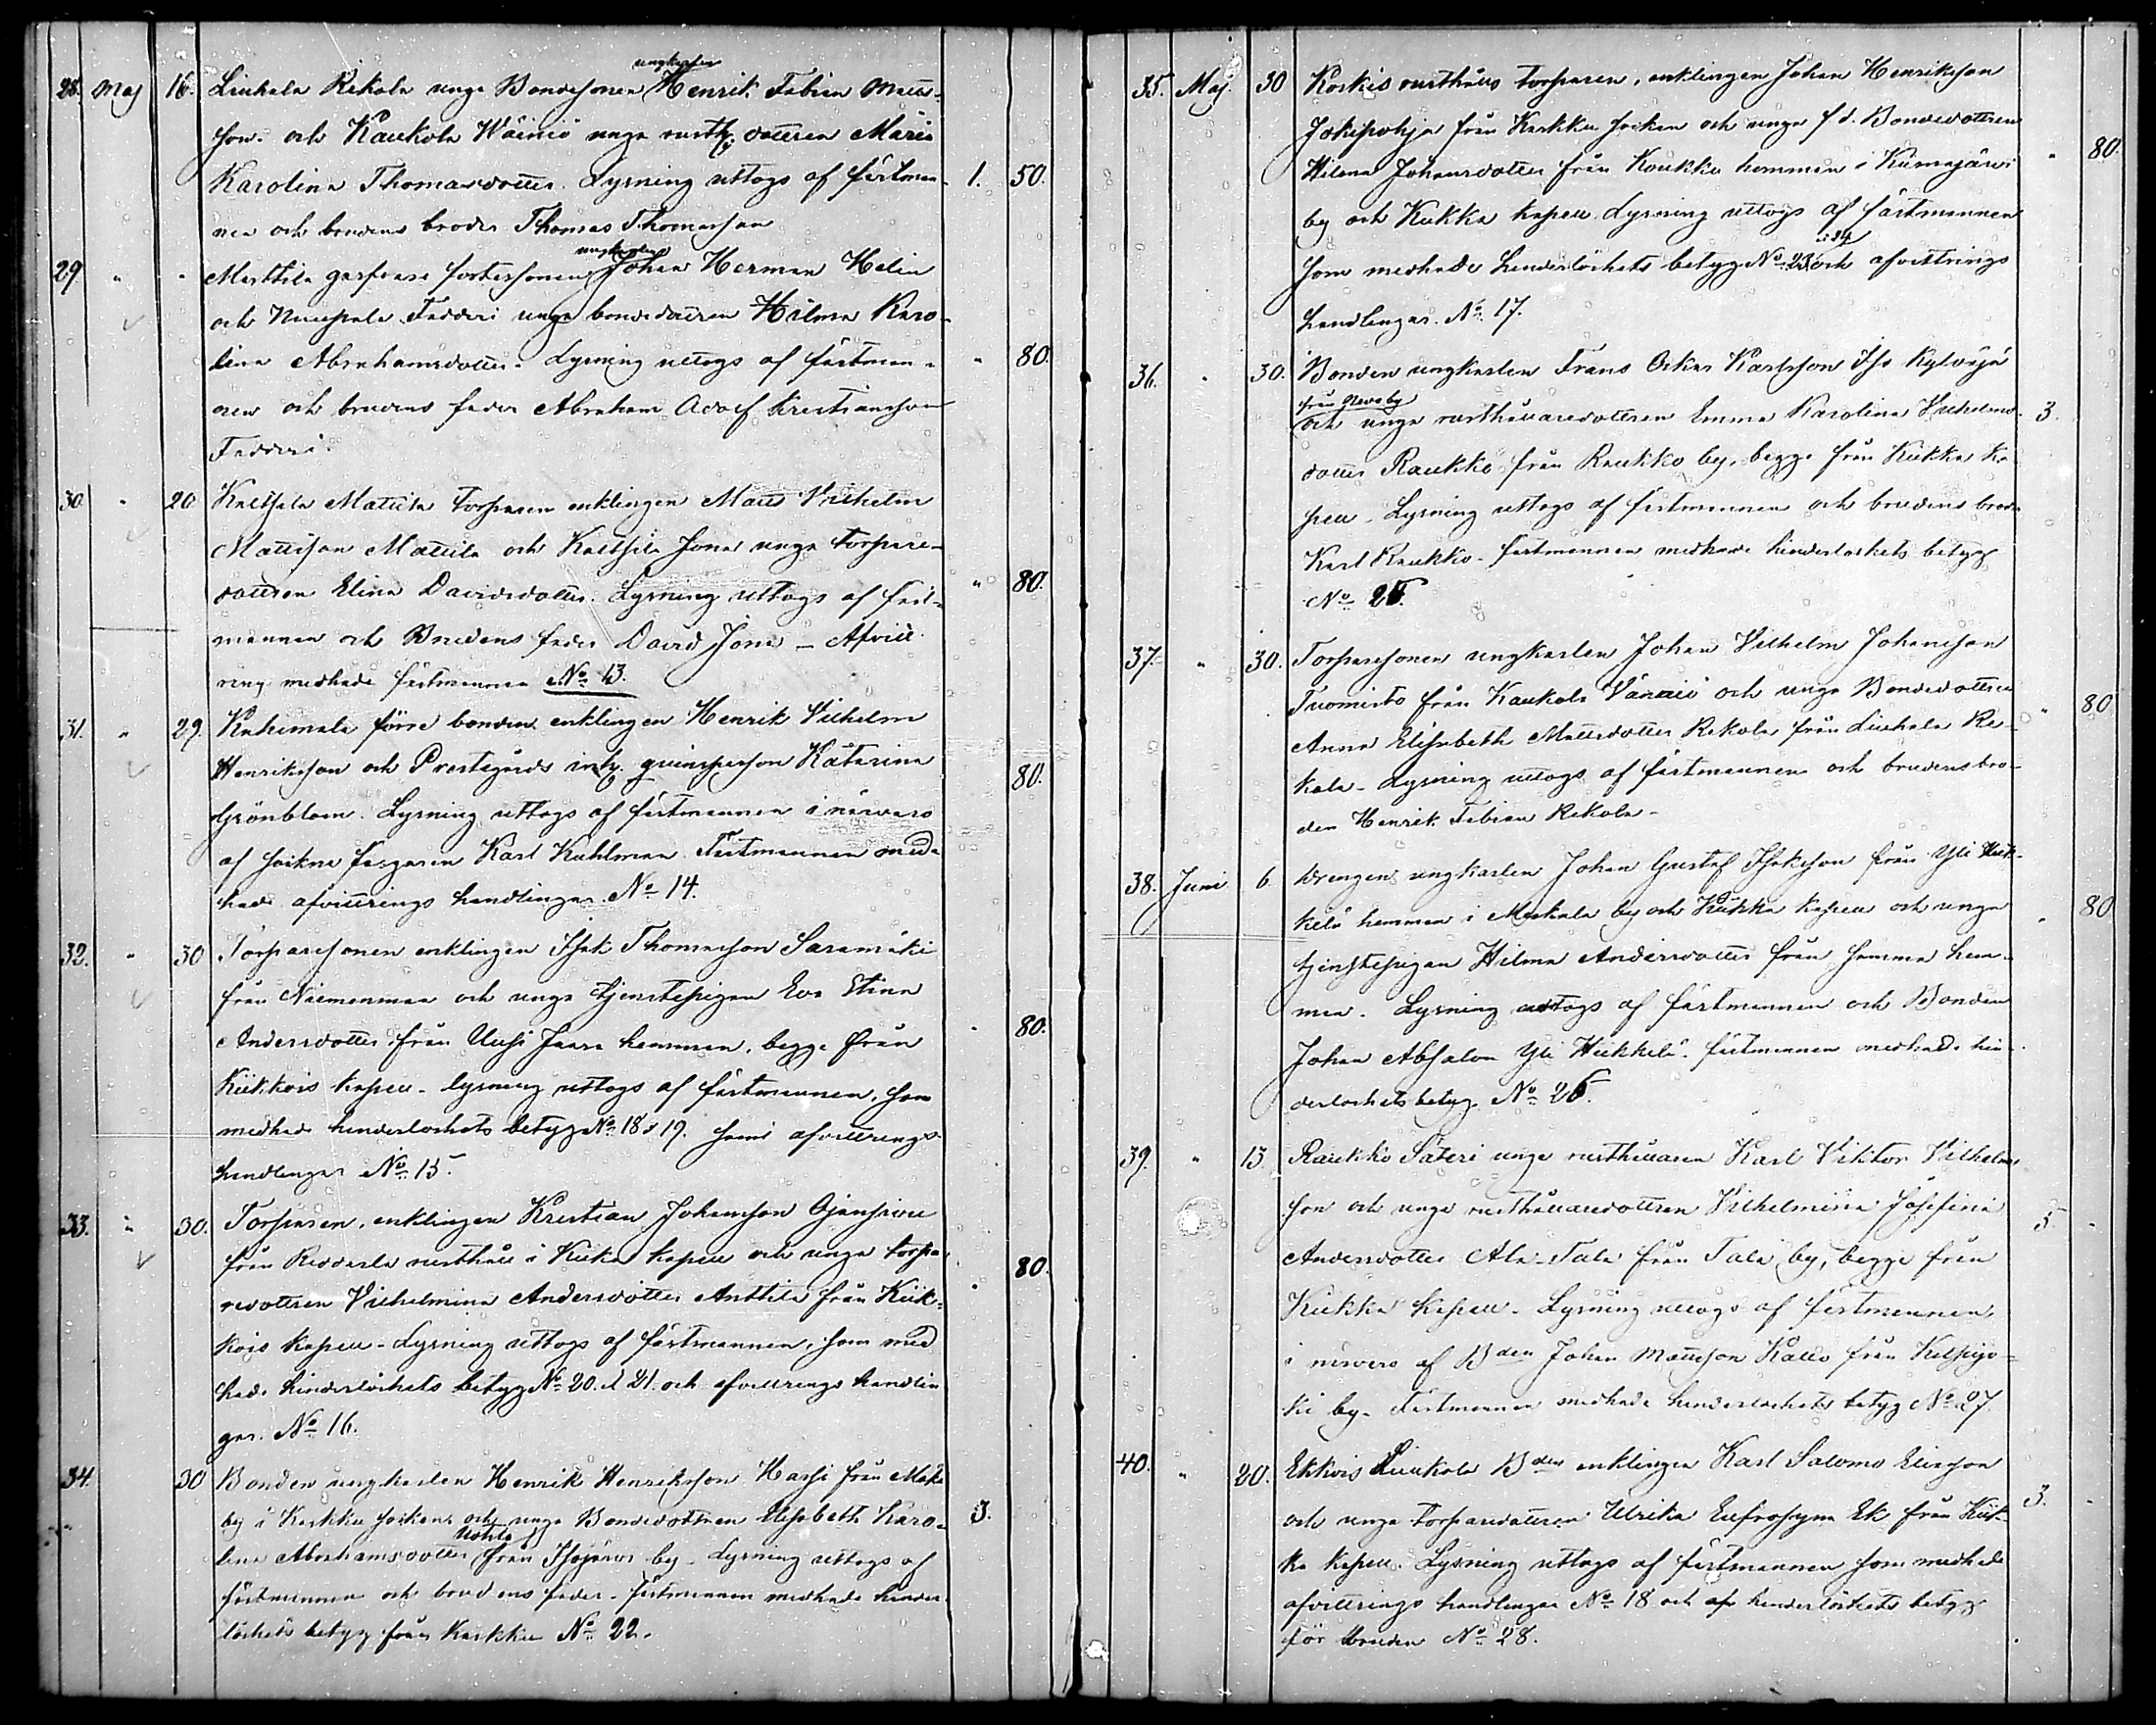 28. Maj 16. Liuhala Rekola unge Bondesonen ungkarlen Henrik Fabian Matts-
son och Kaukola Wäiniö unga rusth: dottren Maria
Karolina Thomasdotter. Lysning uttogs af fästman- 1. 50.
nen och brudens broder Thomas Thomasson
29 " " Marttila garfvare förstersonen ungkarlen Johan Herman Helin
och Nuupala Fadderi unga bondedottren Hilma Karo-
lina Abrahamsdotter. Lysning uttogs af fästman- " 80.
nen och brudens fader Abraham Adolf Kristiansson
Fadderi.
30. " 20 Kaltsila Mattila torparen enklingen Matts Vilhelm
Mattsson Mattila och Kaltsila Jona unga torpare-
dottren Elina Davidsdotter. Lysning uttogs af fäst- " 80.
mannen och Brudens fader David Jona – Afvitt-
ring medhade fästmannen No 13.
31. " 29. Kahimala förre bonden enklingen Henrik Vilhelm
Henriksson och Prestgårds inh. qvinsperson Katarina 80.
Grönblom. Lysning uttogs af fästmannen i närvaro
af sockne färgaren Karl Kuhlman Fästmannen med-
hade afvittrings handlingar No 14.
32. " 30 Torparesonen enklingen Isak Thomasson Saramäki
från Niemenmaa och unga tjenstepigan Eva Stina
Andersdotter från Uusi Jaara hemman, begge från " 80.
Kiikkois kapell. Lysning uttogs af fästmannen, som
medhade hinderlöshets betyg No 18 & 19. samt afvittrings-
handlingar No 15.
33. " 30. Torparen, enklingen Kristian Johansson Ojansivu
från Ridvala rusthåll i Kiikka kapell och unga torpa- 80.
redottren Vilhelmina Andersdotter Anttila från Kiik- "
kois kapell. Lysning uttogs af fästmannen, som med
hade hinderlöshets betyg No 20. & 21. och afvittrings handlin
gar. No 16.
34. 30 Bonden ungkarlen Henrik Henriksson Hassi från
by i Karkku socken och unga Bondedottren Elisabeth Karo- 3.
lina Abrahamsdotter från Isojärvi by. Lysning uttogs af
fästmannen och brudens fader. Fästmannen medhade hinder-
löshets betyg från Karkku No 22.
35. Maj. 30 Koskis rusthålls torparen, enklingen Johan Henriksson
Jokipohja från Karkku socken och unga f.d. Bondedottren
Hilma Johansdotter från Koukku hemman i Kiimajärvi " 80.
by och Kiikka kapell. Lysning uttogs af fästmannen
som medhade hinderlöshets betyg No 23 & 24 och afvittrings
handlingar. No 17.
36. " 30. Bonden ungkarlen Frans Oskar Karlsson Iso Kylväjä
från by
och unga rusthållaredottren Emma Karolina Vilhelms- 3.
dotter Raukko från Raukko by, begge från Kiikka ka
pell. Lysning uttogs af fästmannen och brudens broder
Karl Raukko. fästmannen medhade hinderlöshets betyg
No 25.
37. " 30. Torparesonen ungkarlen Johan Vilhelm Johansson
Tuomisto från Kaukola Vänniö och unga Bondedottren
Anna Elisabeth Mattsdotter Rekola från Liuhala Re- " 80
kola. Lysning uttogs af fästmannen och brudens bro-
der Henrik Fabian Rekola.
38. Juni 6 Drengen ungkarlen Johan Gustaf Isaksson från Yli Hiik-
kelä hemman i by och Kiikka kapell och unga " 80
tjenstepigan Hilma Andersdotter från samma hem-
man. Lysning uttogs af fästmannen och Bonden
Johan Absalon Yli Hiikkelä. fästmannen medhade hin-
derlöshets betyg No 26.
39. " 13. Raukko Säteri unge rusthållaren Karl Viktor Vilhelms-
son och unga rusthållaredottren Vilhelmina Josefina 5 -
Andersdotter Ala-Tala från Tala by, begge från
Kiikka Kapell. Lysning uttogs af fästmannen
i närvaro af Bden Johan Mattsson Kallo från
ki by. Fästmannen medhade hinderlöshets betyg No 27.
40. " 20. Ekkois Liukola Bden enklingen Karl Salomo Eliasson
och unga torparedottren Ulrika Eufrosyna Ek från Kiik- 3. -
ka Kapell. Lysning uttogs af fästmannen som medhade
afvittrings handlingar No 18 och af hinderlöshets betyg
för bruden No 28.